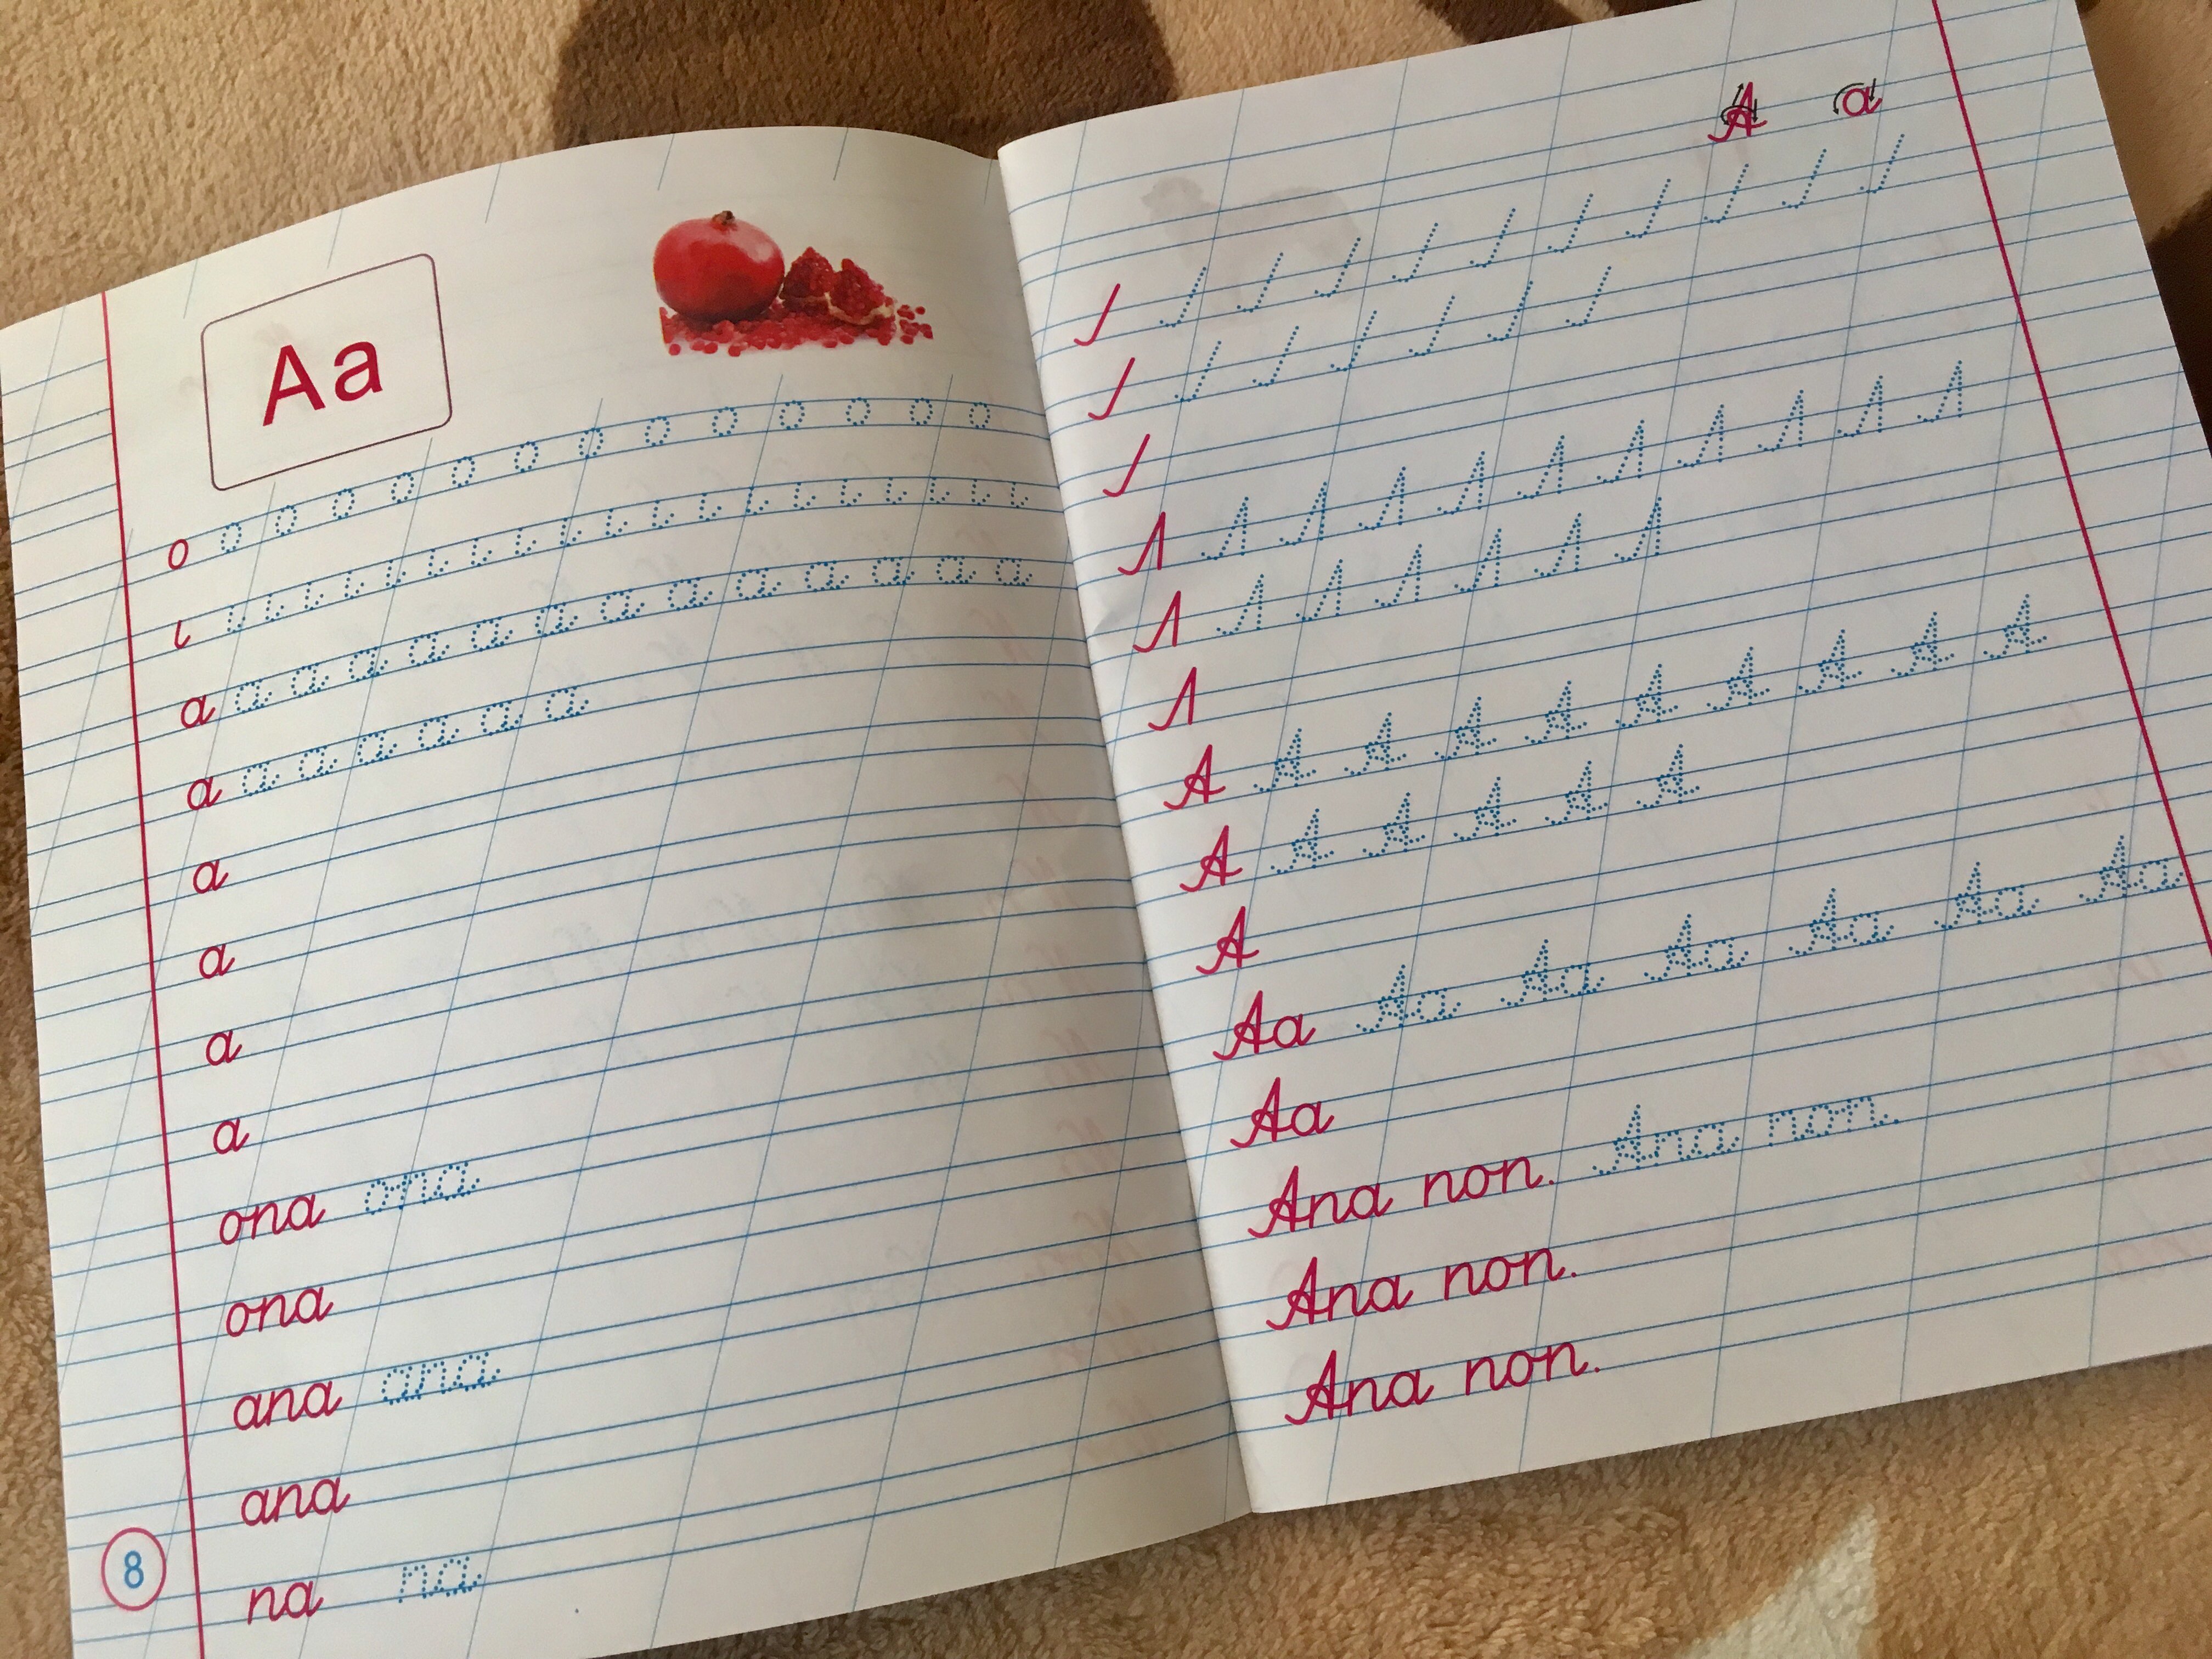 Aa
o o o o o o o o o o o o o o
ι ι ι ι ι ι ι ι ι ι ι ι ι ι ι ι ι ι ι ι
a a a a a a a a a a a a a a
a a a a a a a
a
a
a
a
ona ona
ona
ana ana
ana
na na
8
A a
J J J J J J J J J J J
J J J J J J J
J
Λ Λ Λ Λ Λ Λ Λ Λ Λ Λ Λ
Λ Λ Λ Λ Λ Λ Λ
Λ
A A A A A A A A A A
A A A A A A
A
Aa Aa Aa Aa Aa Aa Aa
Aa
Ana non. Ana non.
Ana non.
Ana non.